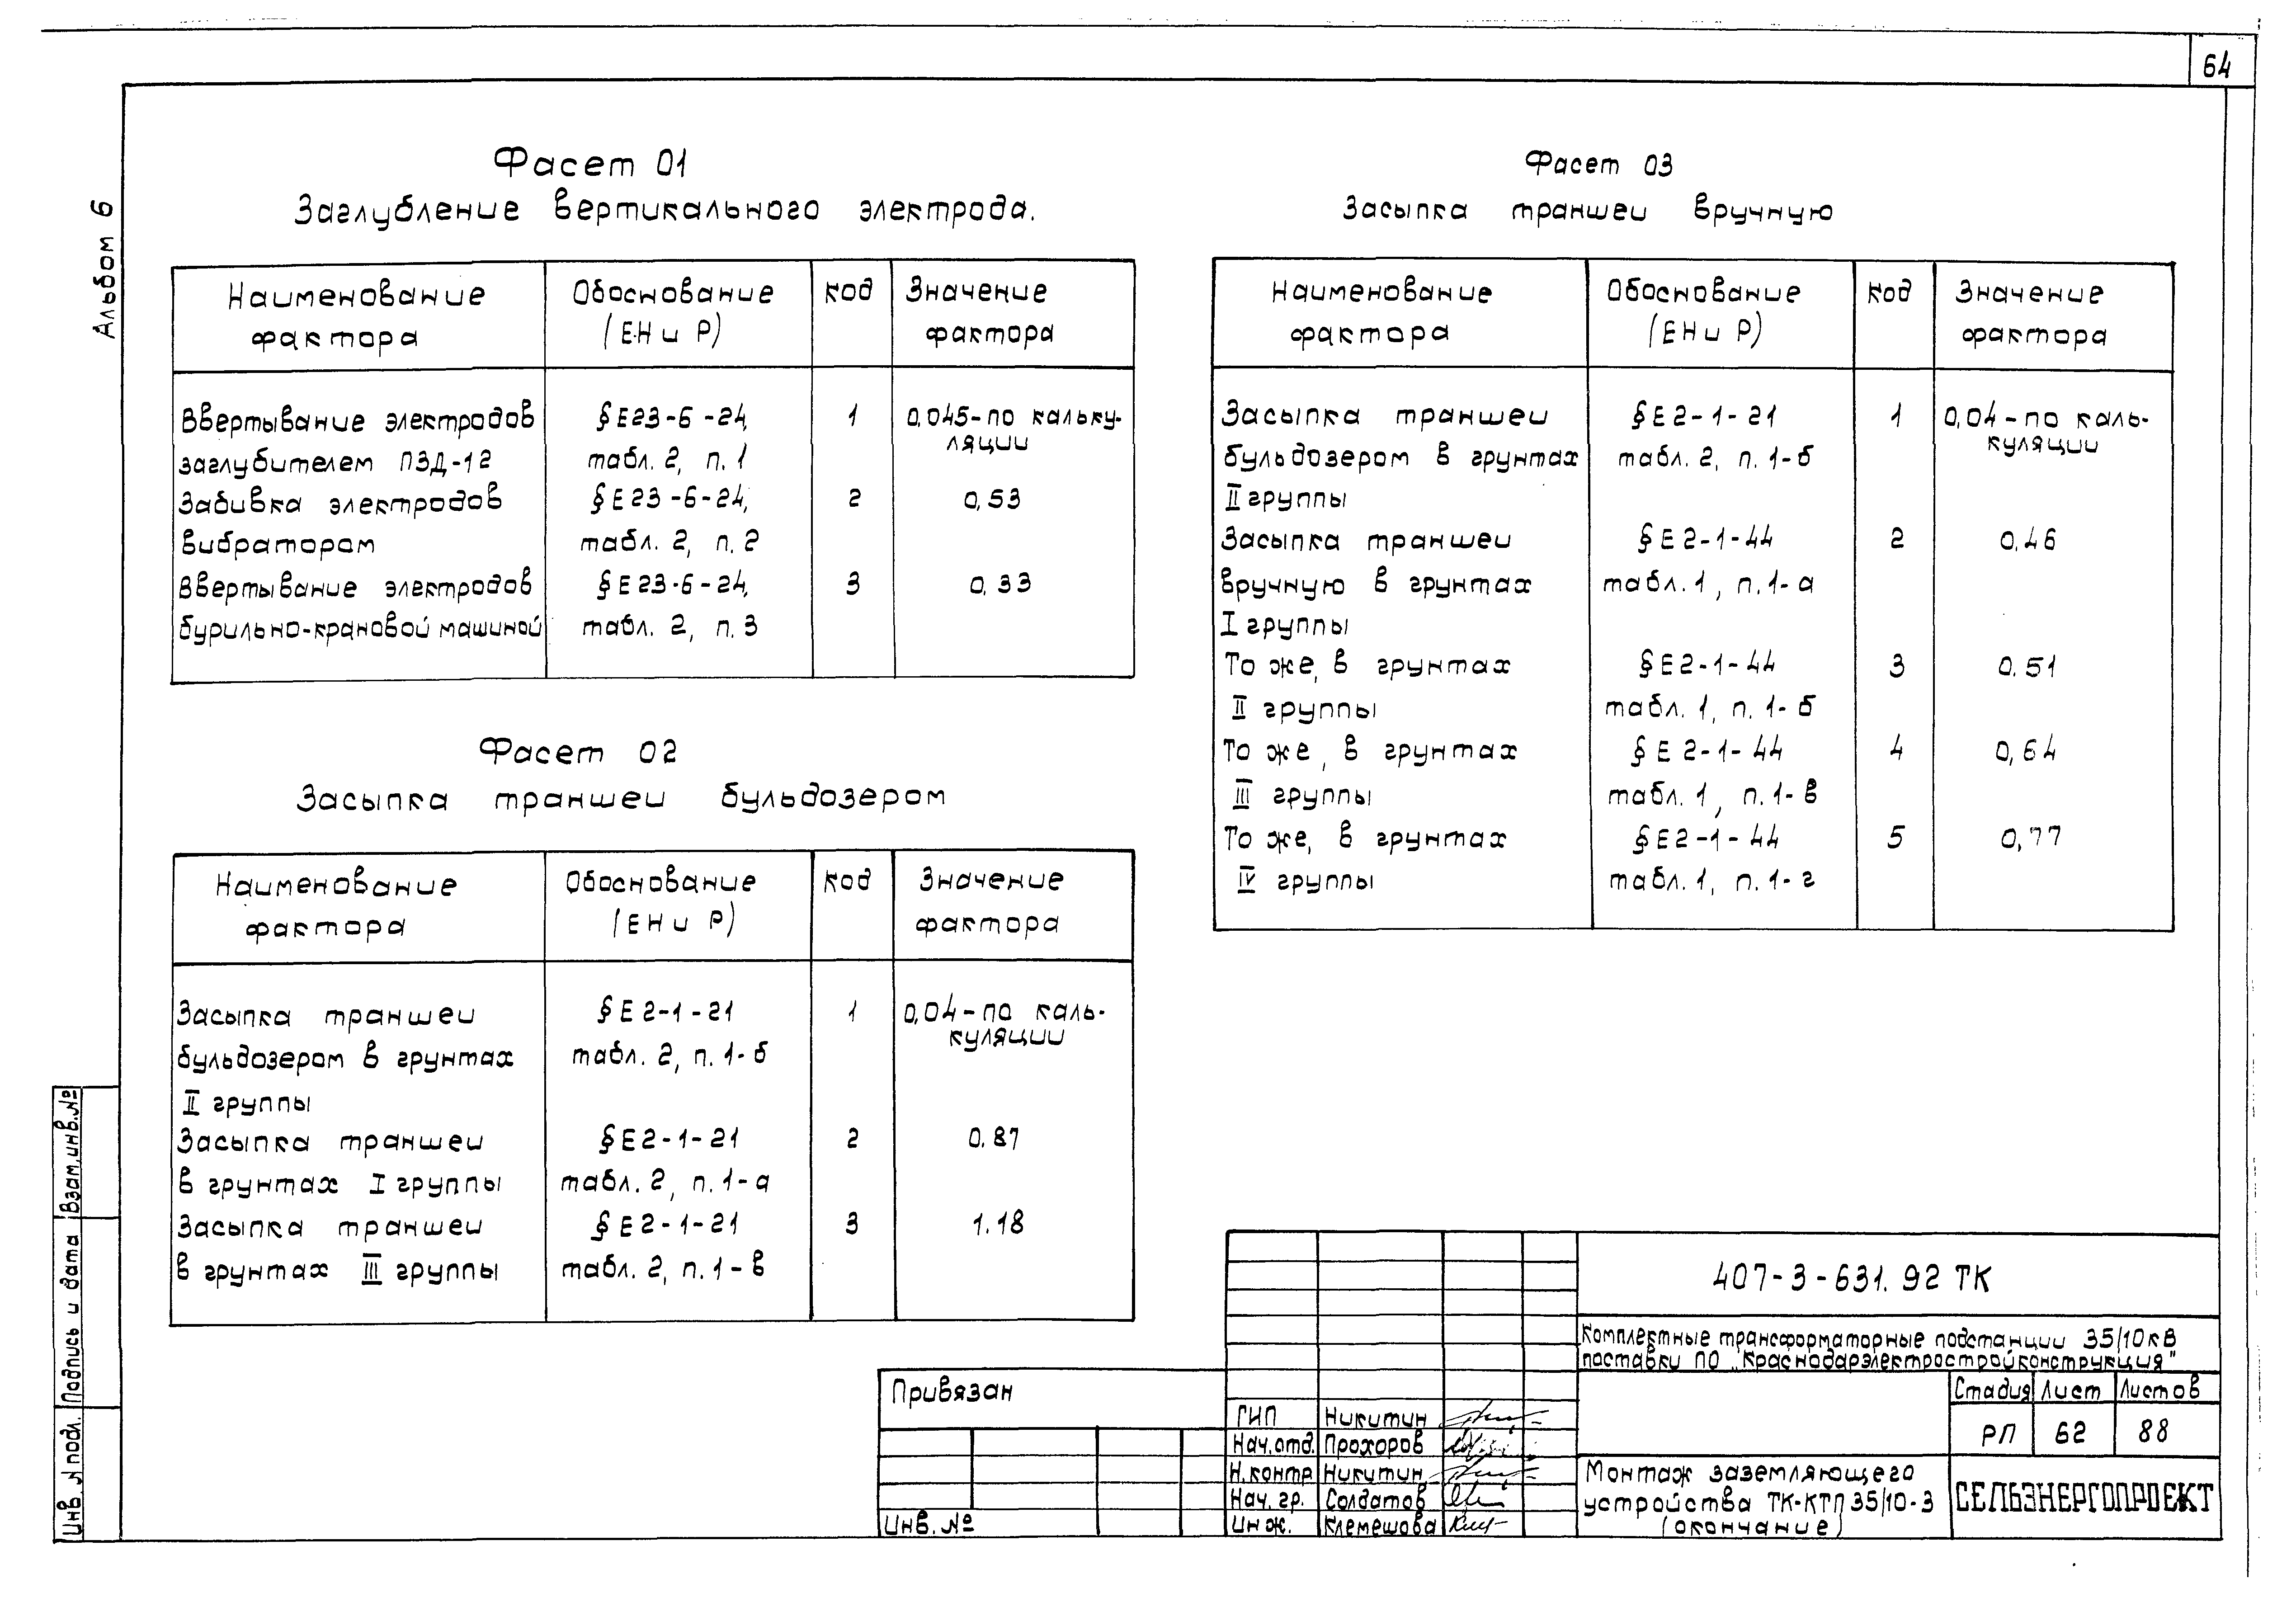 64
Альбом 6
Фасет 01
Заглубление вертикального электрода.
Наименование фактора
Обоснование (ЕН и Р)
код
Значение фактора
Ввертывание электродов §Е23-6-24, 1 0,045-по кальку-
заглубителем ПЗД-12 табл. 2, п. 1 ляции
Забивка электродов §Е23-6-24, 2 0,53
вибратором табл. 2, п. 2
Ввертывание электродов §Е23-6-24, 3 0,33
бурильно-крановой машиной табл. 2, п. 3
Фасет 02
Засыпка траншеи бульдозером
Наименование фактора
Обоснование (ЕН и Р)
код
Значение фактора
Засыпка траншеи §Е2-1-21 1 0,04-по каль-
бульдозером в грунтах табл. 2, п. 1-б куляции
II группы
Засыпка траншеи §Е2-1-21 2 0.87
в грунтах I группы табл. 2, п. 1-а
Засыпка траншеи §Е2-1-21 3 1.18
в грунтах III группы табл. 2, п. 1-в
Фасет 03
Засыпка траншеи вручную
Наименование фактора
Обоснование (ЕН и Р)
код
Значение фактора
Засыпка траншеи §Е2-1-21 1 0,04-по каль-
бульдозером в грунтах табл. 2, п. 1-б куляции
II группы
Засыпка траншеи §Е2-1-44 2 0.46
вручную в грунтах табл. 1, п. 1-а
I группы
То же, в грунтах §Е2-1-44 3 0.51
II группы табл. 1, п. 1-б
То же, в грунтах §Е2-1-44 4 0,64
III группы табл. 1, п. 1-в
То же, в грунтах §Е2-1-44 5 0,77
IV группы табл. 1, п. 1-г
Инв. № подл. Подпись и дата Взам.инв.№
Привязан
Инв. №
ГИП Никитин
Нач.отд. Прохоров
Н.контр Никитин
Нач. гр. Солдатов
Инж. Клемешова
407-3-631.92 ТК
Комплектные трансформаторные подстанции 35/10кВ
поставки ПО „Краснодарэлектростройконструкция"
Стадия Лист Листов
РП 62 88
Монтаж заземляющего
устройства ТК-КТП 35/10-3
(окончание)
СЕЛЬЭНЕРГОПРОЕКТ